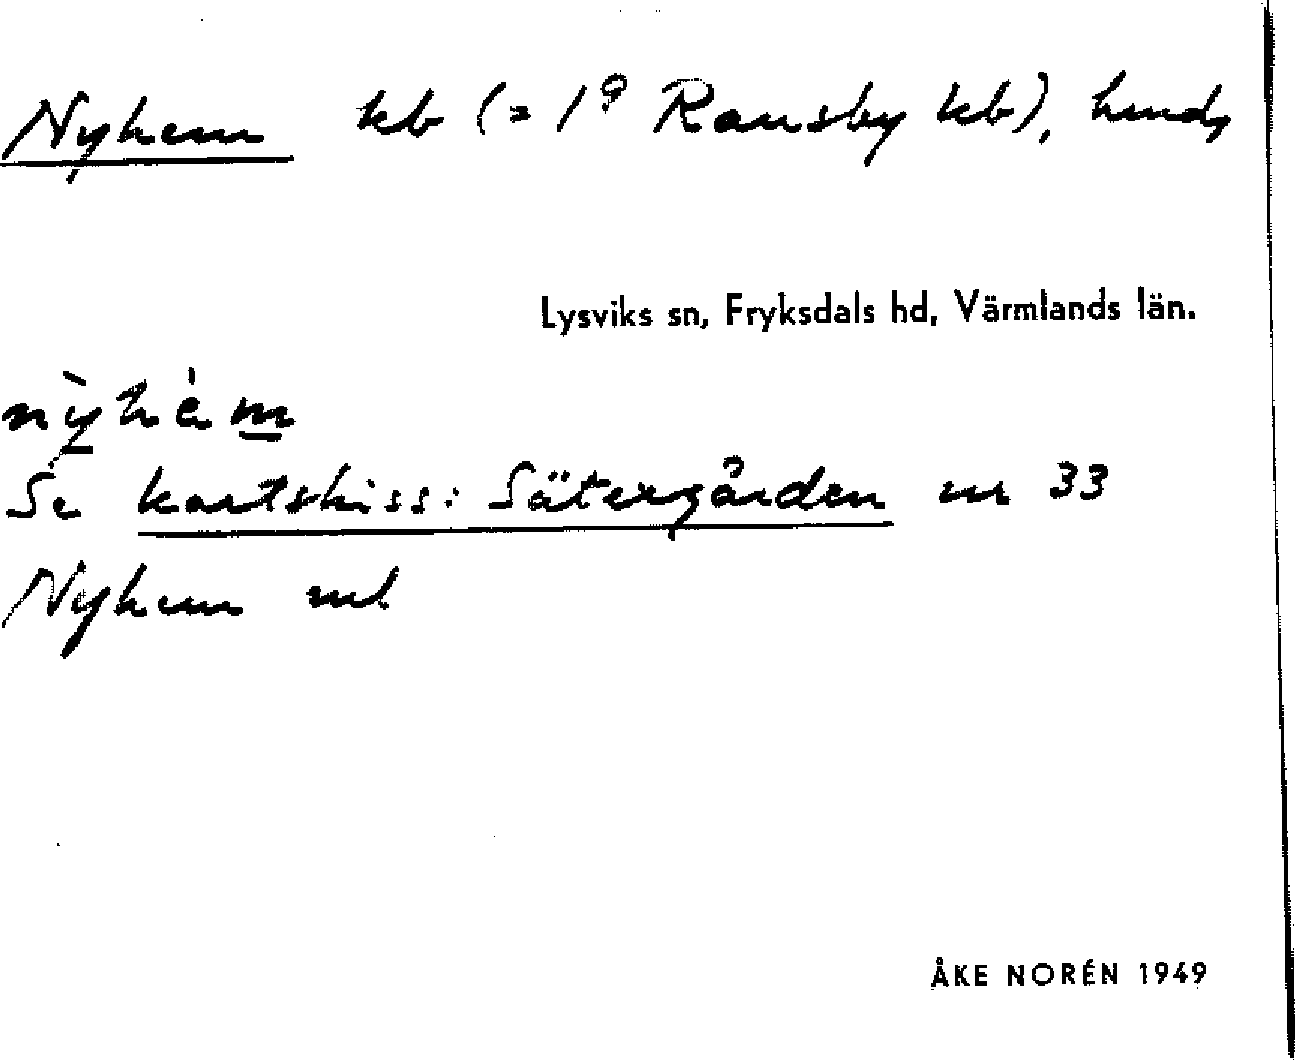 Nyhem kb (= 1⁹ Ransby kb), hmd,
Lysviks sn, Fryksdals hd, Värmlands län.
nỳhém
Se kartskiss: Sätergården nr 33
Nyhem ml
ÅKE NORÉN 1949